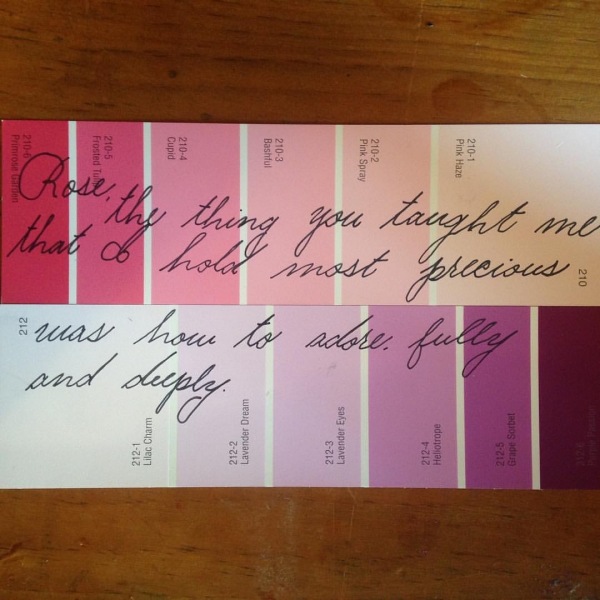 210-6
Primrose Garden
210-5
Frosted
210-4
Cupid
210-3
Bashful
210-2
Pink Spray
210-1
Pink Haze
Rose, the thing you taught me
that I hold most precious
210
212
was how to adore. fully
and deeply.
212-1
Lilac Charm
212-2
Lavender Dream
212-3
Lavender Eyes
212-4
Heliotrope
212-5
Grape Sorbet